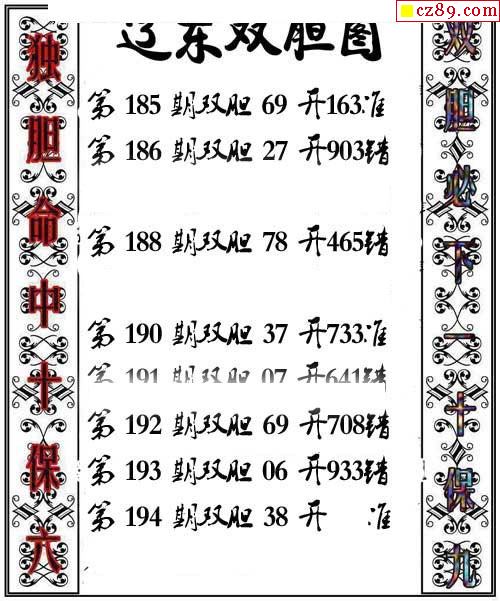 cz89.com
辽东双胆图
独胆命中十保六
第 185 期双胆 69 开163准
第 186 期双胆 27 开903错
第 188 期双胆 78 开465错
第 190 期双胆 37 开733准
第 191 期双胆 07 开641错
第 192 期双胆 69 开708错
第 193 期双胆 06 开933错
第 194 期双胆 38 开 准
双胆必下一十保九